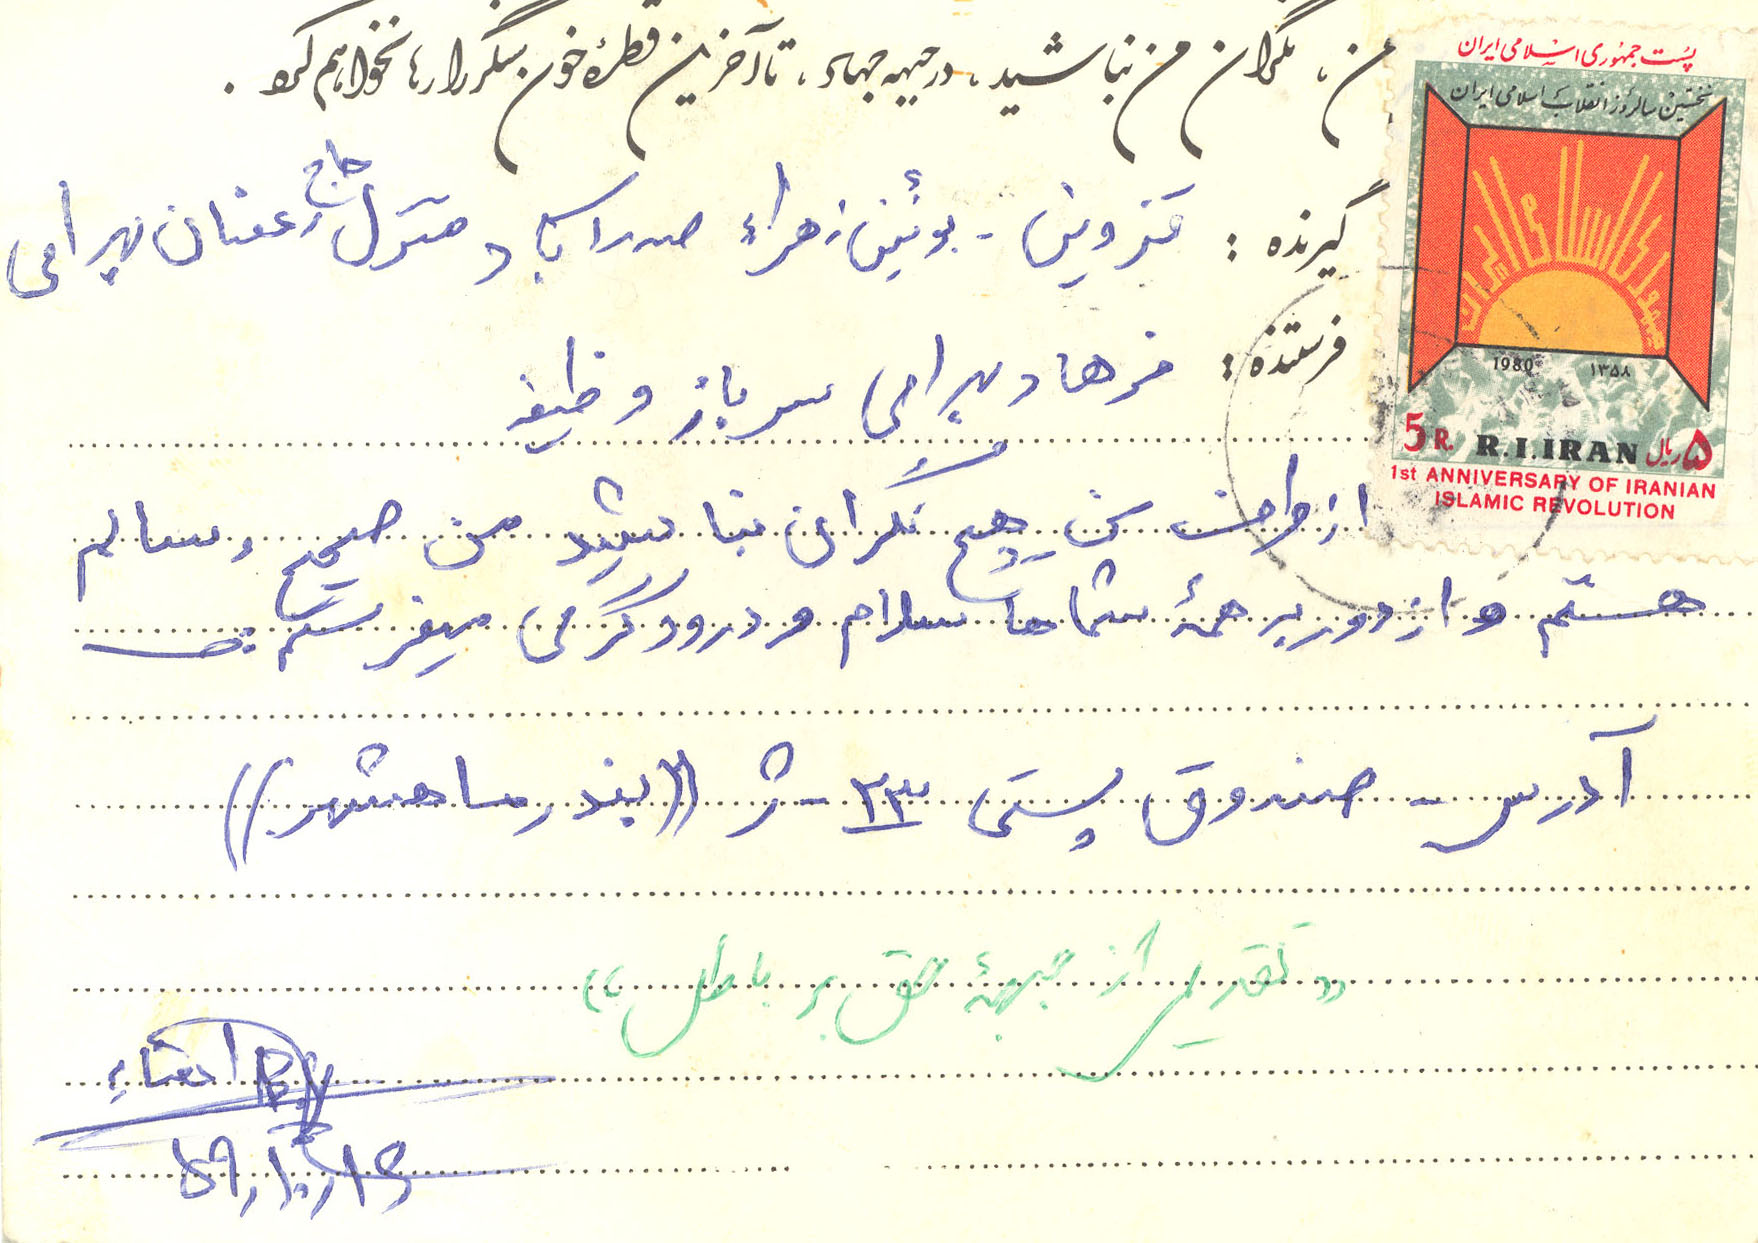 من، نگران من نباشید، در جبهه جهاد، تا آخرین قطرهٔ خون سنگر را رها نخواهم کرد.
پست جمهوری اسلامی ایران
نخستین سالروز انقلاب اسلامی ایران
جمهوری اسلامی ایران
1980 ۱۳۵۸
5 R. R.I.IRAN ۵ ریال
1st ANNIVERSARY OF IRANIAN
ISLAMIC REVOLUTION
گیرنده : قزوین - بوئین زهراء صدرآباد منزل حاج رمضان بهرامی
فرستنده : فرهاد بهرامی سرباز وظیفه
از طرف من هیچ نگران نباشید من صحیح و سالم
هستم و از دور بر همهٔ شماها سلام و درود گرمی میفرستم
آدرس - صندوق پستی ۳۳ - ژ ((بندر ماهشهر))
«تقدیمی از جبههٔ حق بر باطل»
امضاء
۵۹